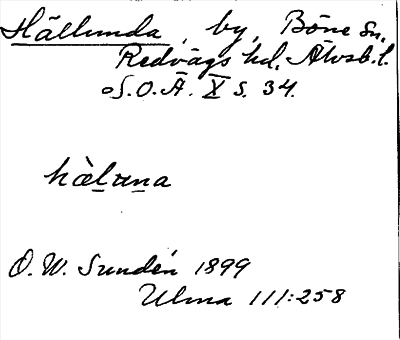 Hällunda, by, Böne sn.
Redvägs hd. Älvsb. l.
S.O.Ä. X s. 34.
hæ̀luna
O. W. Sundén 1899
Ulma 111:258